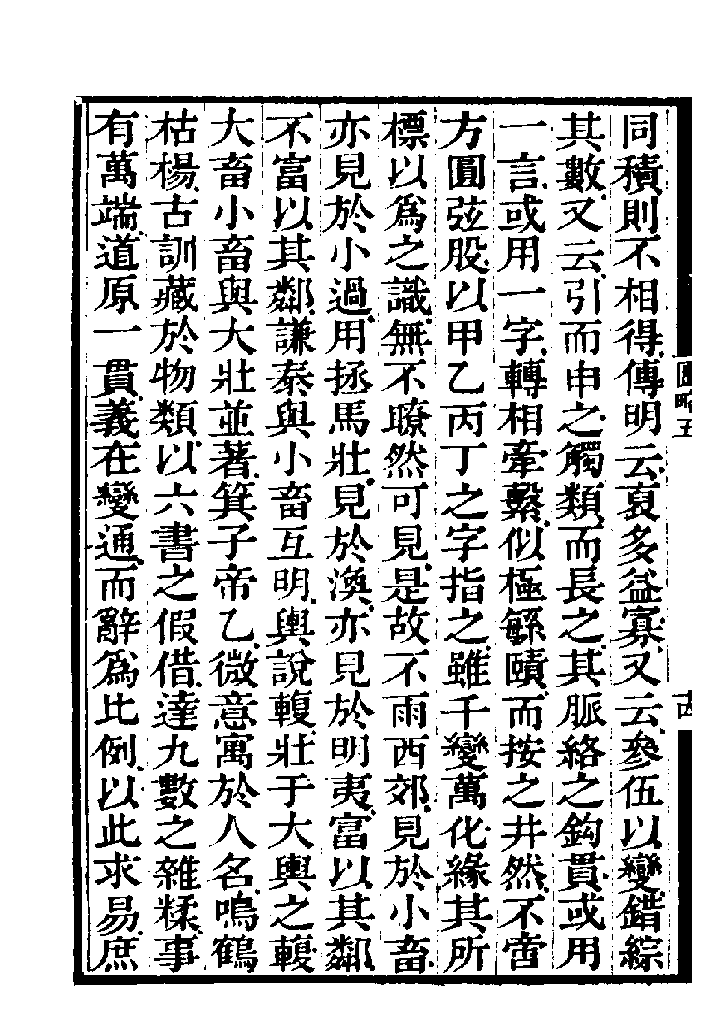 同積則不相得傳明云裒多益寡又云參伍以變錯綜
其數又云引而申之觸類而長之其脈絡之鈎貫或用
一言或用一字轉相牽繫似極繇賾而按之井然不啻
方圓弦股以甲乙丙丁之字指之雖千變萬化緣其所
標以爲之識無不瞭然可見是故不雨西郊見於小畜
亦見於小過用拯馬壯見於渙亦見於明夷富以其鄰
不富以其鄰謙泰與小畜互明輿說輹壯于大輿之輹
大畜小畜與大壯並著箕子帝乙微意寓於人名鳴鶴
枯楊古訓藏於物類以六書之假借達九數之雜糅事
有萬端道原一貫義在變通而辭爲比例以此求易庶
圖略五
古